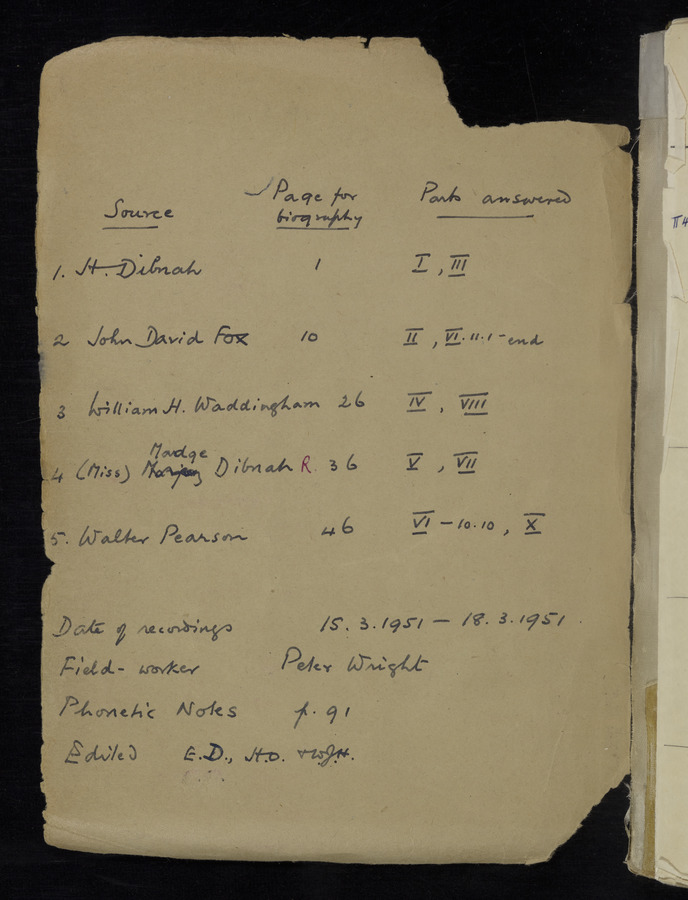 Source Page for biography Parts answered
1. H. Dibnah 1 I, III
2 John David Fox 10 II, VI.11.1-end
3 William H. Waddingham 26 IV, VIII
Madge
4 (Miss) Dibnah R. 36 V, VII
5. Walter Pearson 46 VI - 10.10, X
Date of recordings 15.3.1951 - 18.3.1951.
Field-worker Peter Wright
Phonetic Notes p. 91
Edited E.D., H.O. + W.J.H.